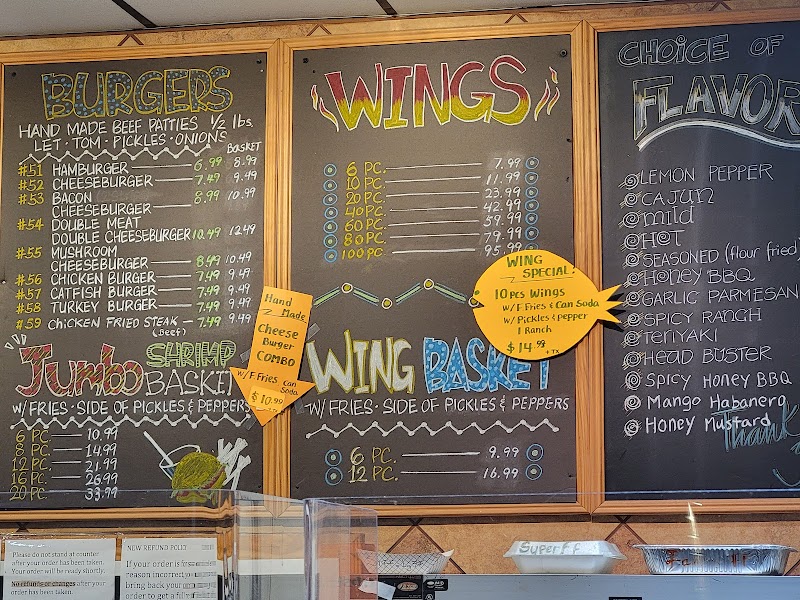 BURGERS
HAND MADE BEEF PATTIES 1/2 lbs.
LET · TOM · PICKLES · ONIONS
BASKET
#51 HAMBURGER 6.99 8.99
#52 CHEESEBURGER 7.49 9.49
#53 BACON CHEESEBURGER 8.99 10.99
#54 DOUBLE MEAT
DOUBLE CHEESEBURGER 10.49 12.49
#55 MUSHROOM
CHEESEBURGER 8.49 10.49
#56 CHICKEN BURGER 7.49 9.49
#57 CATFISH BURGER 7.49 9.49
#58 TURKEY BURGER 7.49 9.49
#59 CHICKEN FRIED STEAK 7.49 9.49
(Beef)
JUMBO SHRIMP
BASKET
W/ FRIES · SIDE OF PICKLES & PEPPERS
6 PC. 10.99
8 PC. 14.99
12 PC. 21.99
16 PC. 26.99
20 PC. 33.99
Hand Made
Cheese
Burger
COMBO
W/ F Fries & Can Soda
$10.99
WINGS
6 PC. 7.99
10 PC. 11.99
20 PC. 23.99
40 PC. 42.99
60 PC. 59.99
80 PC. 79.99
100 PC 95.99
WING
SPECIAL!
10 pcs Wings
W/ F Fries & Can Soda
W/ Pickles & Pepper
1 Ranch
$14.99 + TX
WING BASKET
W/ FRIES · SIDE OF PICKLES & PEPPERS
6 PC. 9.99
12 PC. 16.99
CHOICE OF
FLAVOR
LEMON PEPPER
CAJUN
mild
HOT
SEASONED (flour fried)
HONEY BBQ
GARLIC PARMESAN
SPICY RANCH
TERIYAKI
HEAD BUSTER
SPICY HONEY BBQ
Mango Habanero
Honey Mustard
Thank
Please do not stand at counter
after your order has been taken.
Your order will be ready shortly.
No refunds or changes after your
order has been taken.
NEW REFUND POLIC
If your order is
reason incorrect
bring back your
order to get a full
Super FF